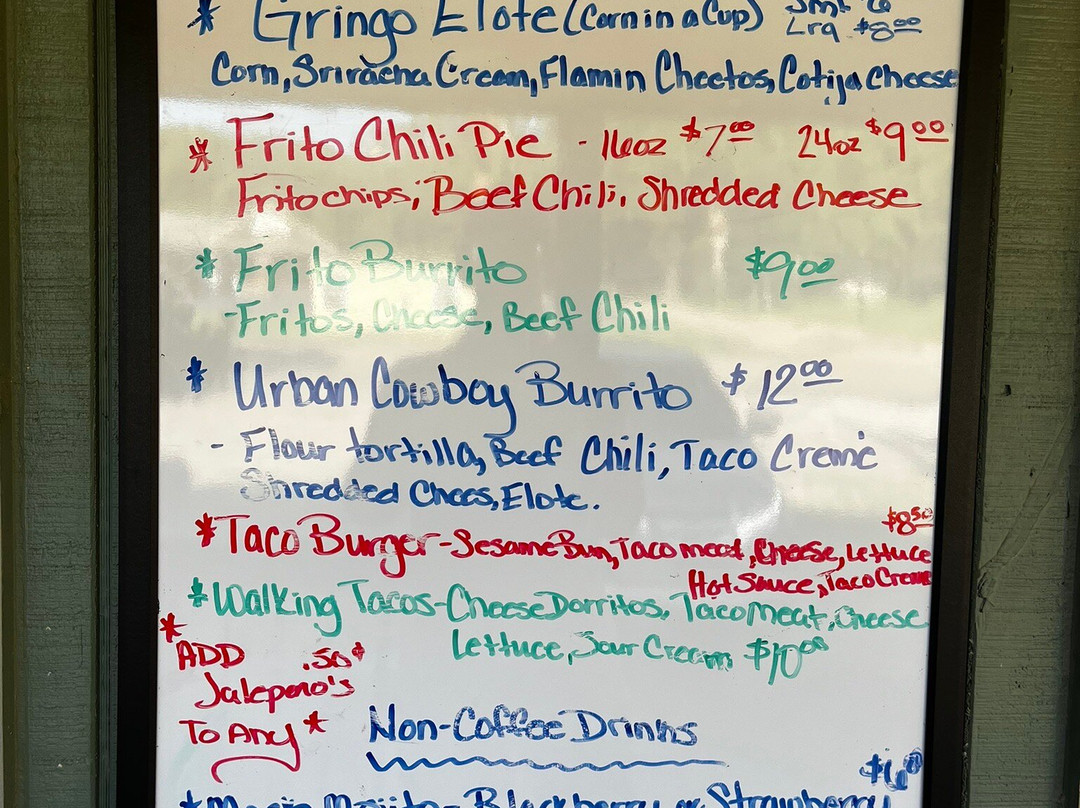 * Gringo Elote (Corn in a Cup) Sml 6
Lrg $8.00
Corn, Sriracha Cream, Flamin Cheetos, Cotija Cheese
* Frito Chili Pie - 16oz $7.00 24oz $9.00
Frito chips, Beef Chili, Shredded Cheese
* Frito Burrito $9.00
-Fritos, Cheese, Beef Chili
* Urban Cowboy Burrito $12.00
- Flour tortilla, Beef Chili, Taco Creme
Shredded Chees, Elote.
$8.50
*Taco Burger-Sesame Bun, Taco meat, Cheese, Lettuce
Hot Sauce, Taco Creme
*Walking Tacos-Cheese Dorritos, Taco Meat, Cheese
Lettuce, Sour Cream $10.00
*
ADD .50¢
Jalepeno's
To Any *
Non-Coffee Drinks
$6.00
Mojito - Blackberry or Strawberry